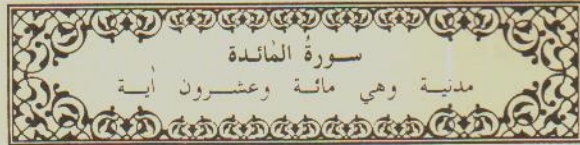 سورةُ المٰائدة
مدنية وهي مائة وعشرون أية